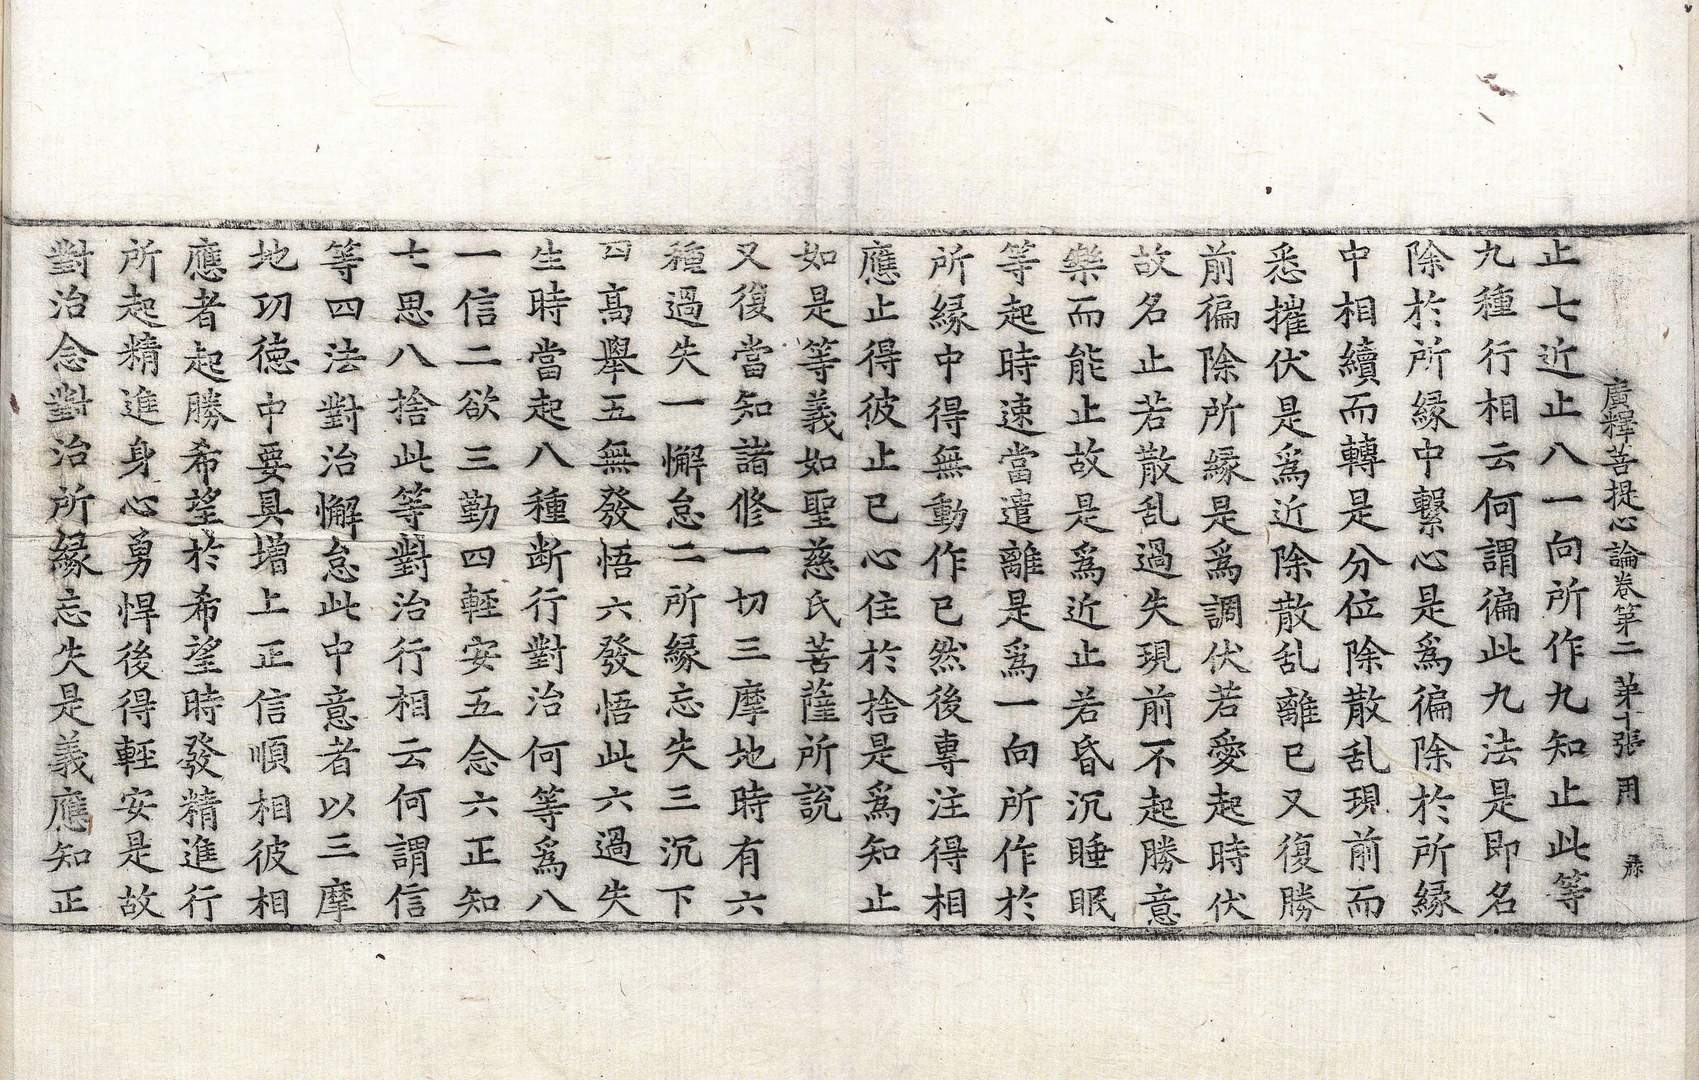 廣釋菩提心論卷第二 第十張 用
止七近止八一向所作九知止此等
九種行相云何謂徧此九法是即名
除於所縁中繫心是爲徧除於所縁
中相續而轉是分位除散乱現前而
悉摧伏是爲近除散乱離已又復勝
前徧除所縁是爲調伏若愛起時伏
故名止若散乱過失現前不起勝意
樂而能止故是爲近止若昏沉睡眠
等起時速當遣離是爲一向所作於
所縁中得無動作已然後專注得相
應止得彼止已心住於捨是爲知止
如是等義如聖慈氏菩薩所說
又復當知諸修一切三摩地時有六
種過失一懈怠二所縁忘失三沉下
四高舉五無發悟六發悟此六過失
生時當起八種断行對治何等爲八
一信二欲三勤四輕安五念六正知
七思八捨此等對治行相云何謂信
等四法對治懈怠此中意者以三摩
地功徳中要具增上正信順相彼相
應者起勝希望於希望時發精進行
所起精進身心勇悍後得輕安是故
對治念對治所縁忘失是義應知正